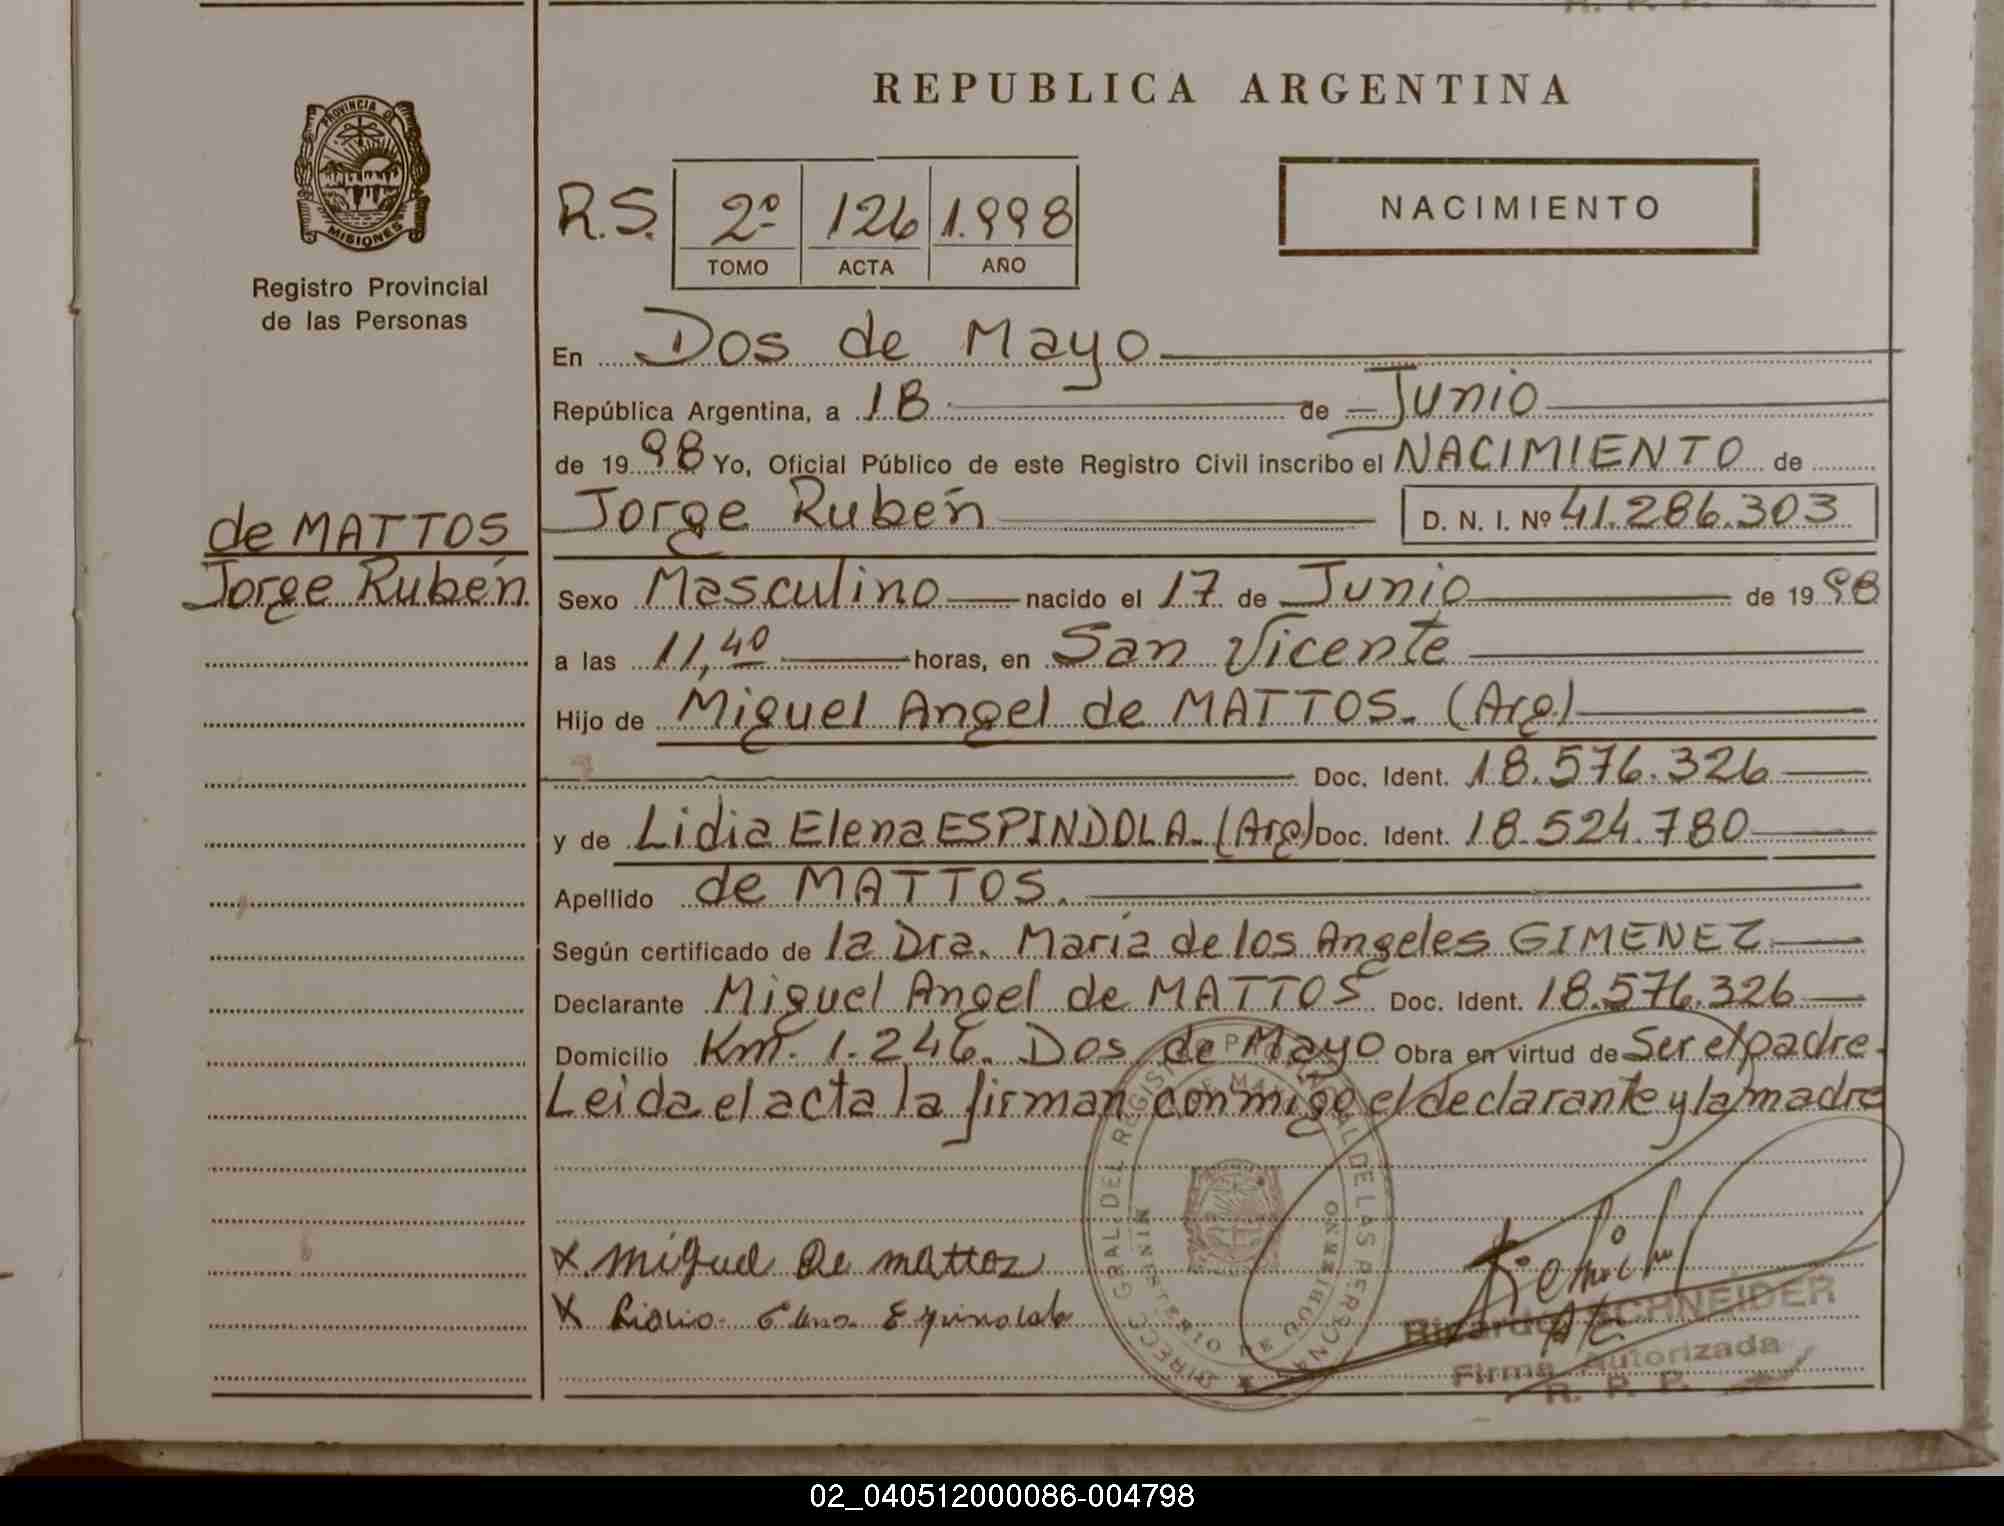 REPUBLICA ARGENTINA
PROVINCIA DE
MISIONES
Registro Provincial
de las Personas
R.S. 2º 126 1.998
TOMO ACTA AÑO
NACIMIENTO
En Dos de Mayo
República Argentina, a 18 de Junio
de 1998 Yo, Oficial Público de este Registro Civil inscribo el NACIMIENTO de
de MATTOS
Jorge Rubén
Jorge Rubén D. N. I. Nº 41.286.303
Sexo Masculino nacido el 17 de Junio de 1998
a las 11,40 horas, en San Vicente
Hijo de Miguel Angel de MATTOS. (Arg)
Doc. Ident. 18.576.326
y de Lidia Elena ESPINDOLA. (Arg) Doc. Ident. 18.524.780
Apellido de MATTOS.
Según certificado de la Dra. María de los Angeles GIMENEZ
Declarante Miguel Angel de MATTOS Doc. Ident. 18.576.326
Domicilio Km. 1.246. Dos de Mayo Obra en virtud de Ser el padre.
Leida el acta la firman conmigo el declarante y la madre
X Miguel De mattos
X
MINISTERIO DE GOBIERNO
Ricardo SCHNEIDER
Firma Autorizada
R. P. P.
02_040512000086-004798